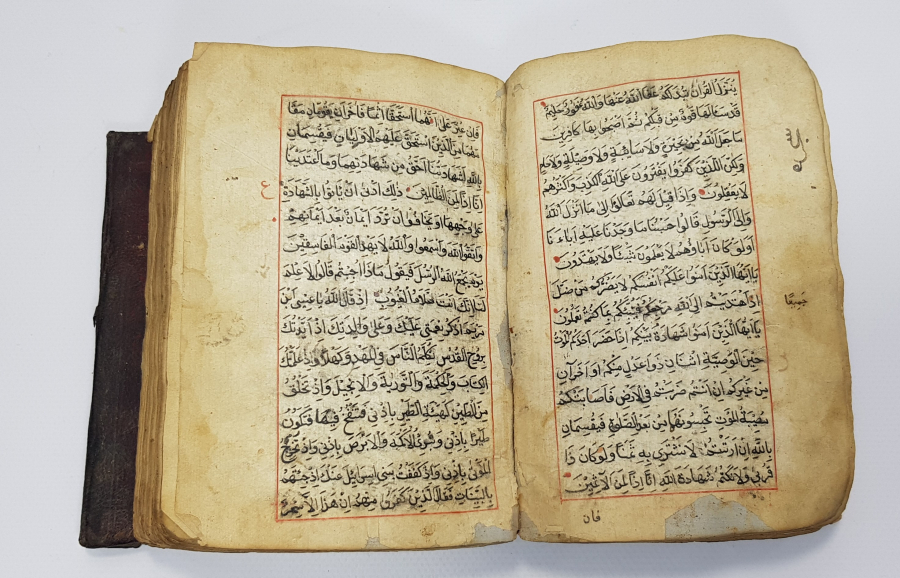 ينزل القران تبد لكم عفا الله عنها والله غفور حليم
قد سالها قوم من قبلكم ثم اصبحوا بها كافرين
ما جعل الله من بحيرة ولا سائبة ولا وصيلة ولا حام
ولكن الذين كفروا يفترون على الله الكذب واكثرهم
لا يعقلون واذا قيل لهم تعالوا الى ما انزل الله
والى الرسول قالوا حسبنا ما وجدنا عليه اباءنا
اولو كان اباؤهم لا يعلمون شيئا ولا يهتدون
يا ايها الذين امنوا عليكم انفسكم لا يضركم من ضل
اذا اهتديتم الى الله مرجعكم فينبئكم بما كنتم تعملون
جميعا
يا ايها الذين امنوا شهادة بينكم اذا حضر احدكم الموت
حين الوصية اثنان ذوا عدل منكم او اخران
من غيركم ان انتم ضربتم في الارض فاصابتكم
مصيبة الموت تحبسونهما من بعد الصلوة فيقسمان
بالله ان ارتبتم لا نشتري به ثمنا ولو كان ذا
قربى ولا نكتم شهادة الله انا اذا لمن الاثمين
فان
فان عثر على انهما استحقا اثما فاخران يقومان مقا
مهما من الذين استحق عليهم الاوليان فيقسمان
بالله لشهادتنا احق من شهادتهما وما اعتدينا
انا اذا لمن الظالمين ذلك ادنى ان ياتوا بالشهادة
ع
على وجهها او يخافوا ان ترد ايمان بعد ايمانهم
واتقوا الله واسمعوا والله لا يهد القوم الفاسقين
يوم يجمع الله الرسل فيقول ماذا اجبتم قالوا لا علم
لنا انك انت علام الغيوب اذ قال الله يا عيسى ابن
مريم اذكر نعمتي عليك وعلى والدتك اذ ايدتك
بروح القدس تكلم الناس في المهد وكهلا واذ علمتك
الكتاب والحكمة والتورية والانجيل واذ تخلق
من الطين كهيئة الطير باذني فتنفخ فيها فتكون
طيرا باذني وتبرئ الاكمه والابرص باذني واذ تخرج
الموتى باذني واذ كففت بني اسرائيل عنك اذ جئتهم
بالبينات فقال الذين كفروا منهم ان هذا الا سحر